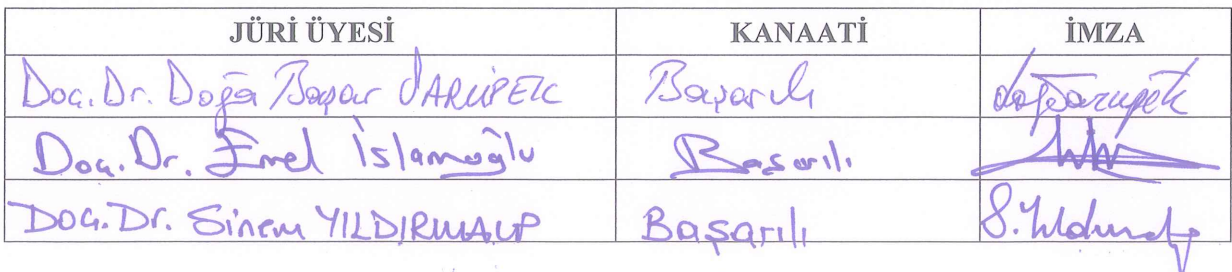 JÜRİ ÜYESİ KANAATİ İMZA
Doç. Dr. Doğa Başar SARIİPEK Başarılı
Doç. Dr. Emel İslamoğlu Başarılı
Doç. Dr. Sinem YILDIRIMALP Başarılı S. Yıldırımalp